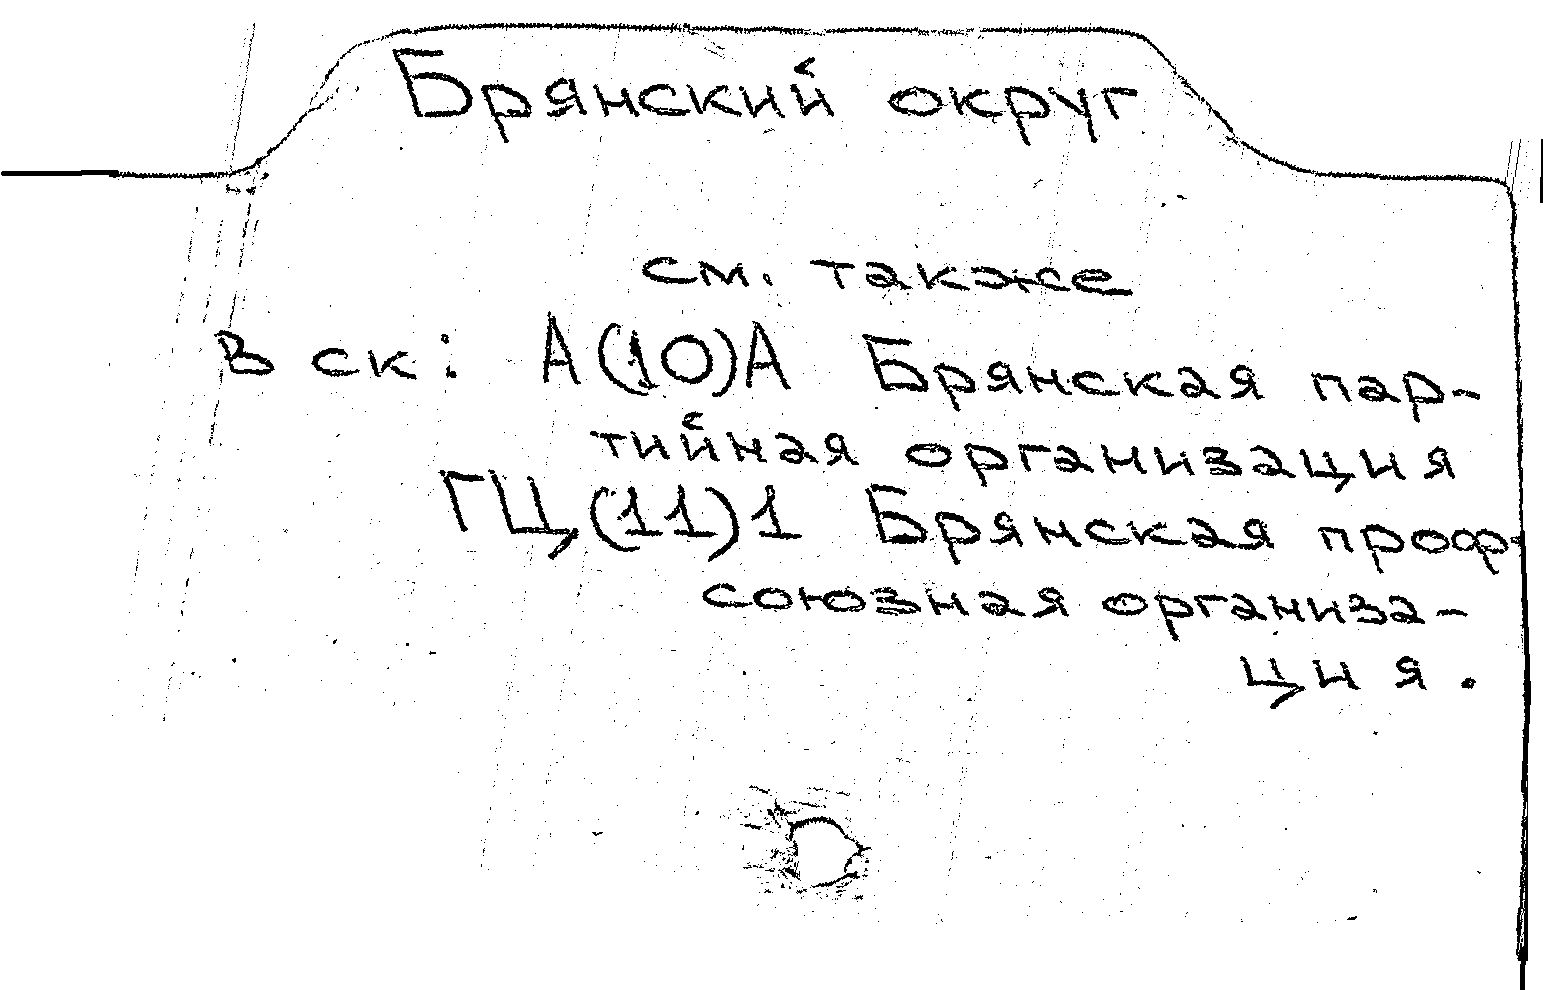 Брянский округ
см. также
В ск: А(10)А Брянская пар-
тийная организация
ГЦ(11)1 Брянская проф-
союзная организа-
ция.